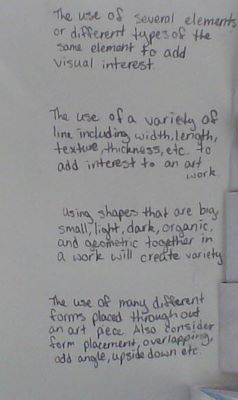 The use of several elements
or different types of the
same element to add
visual interest.
The use of a variety of
line including width, length,
texture, thickness, etc. to
add interest to an art
work.
Using shapes that are big,
small, light, dark, organic,
and geometric together in
a work will create variety
The use of many different
forms placed throughout
an art piece. Also consider
form placement, overlapping,
add angle, upside down etc.